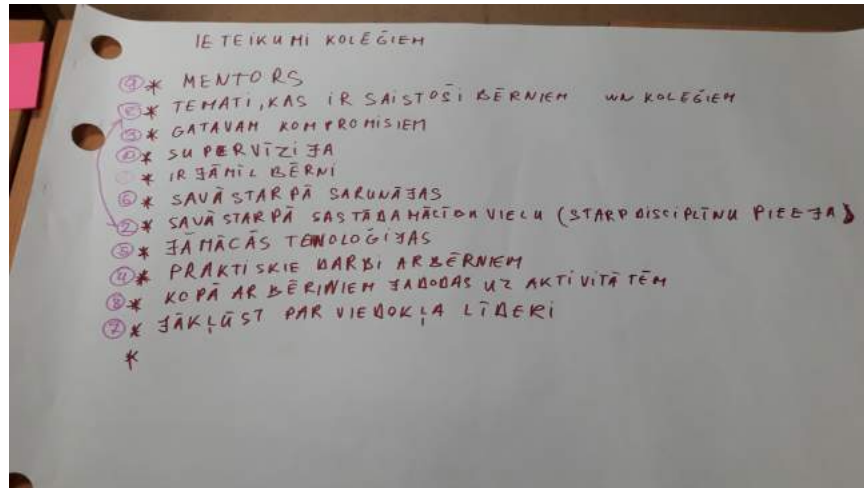 IETEIKUMI KOLĒĢIEM
⑨* MENTORS
* TEMATI, KAS IR SAISTOŠI BĒRNIEM UN KOLĒĢIEM
③* GATAVAM KOMPROMISIEM
* SUPERVĪZIJA
* IR JĀMĪL BĒRNI
⑥* SAVĀ STARPĀ SARUNĀJAS
②* SAVĀ STARPĀ SASTĀDA MĀCĪBU VIELU (STARPDISCIPLĪNU PIEEJA)
⑤* JĀMĀCĀS TEHOLOĢIJAS
④* PRAKTISKIE DARBI AR BĒRNIEM
⑧* KOPĀ AR BĒRINIEM JADODAS UZ AKTIVITĀTĒM
⑦* JĀKĻŪST PAR VIEDOKĻA LĪDERI
*